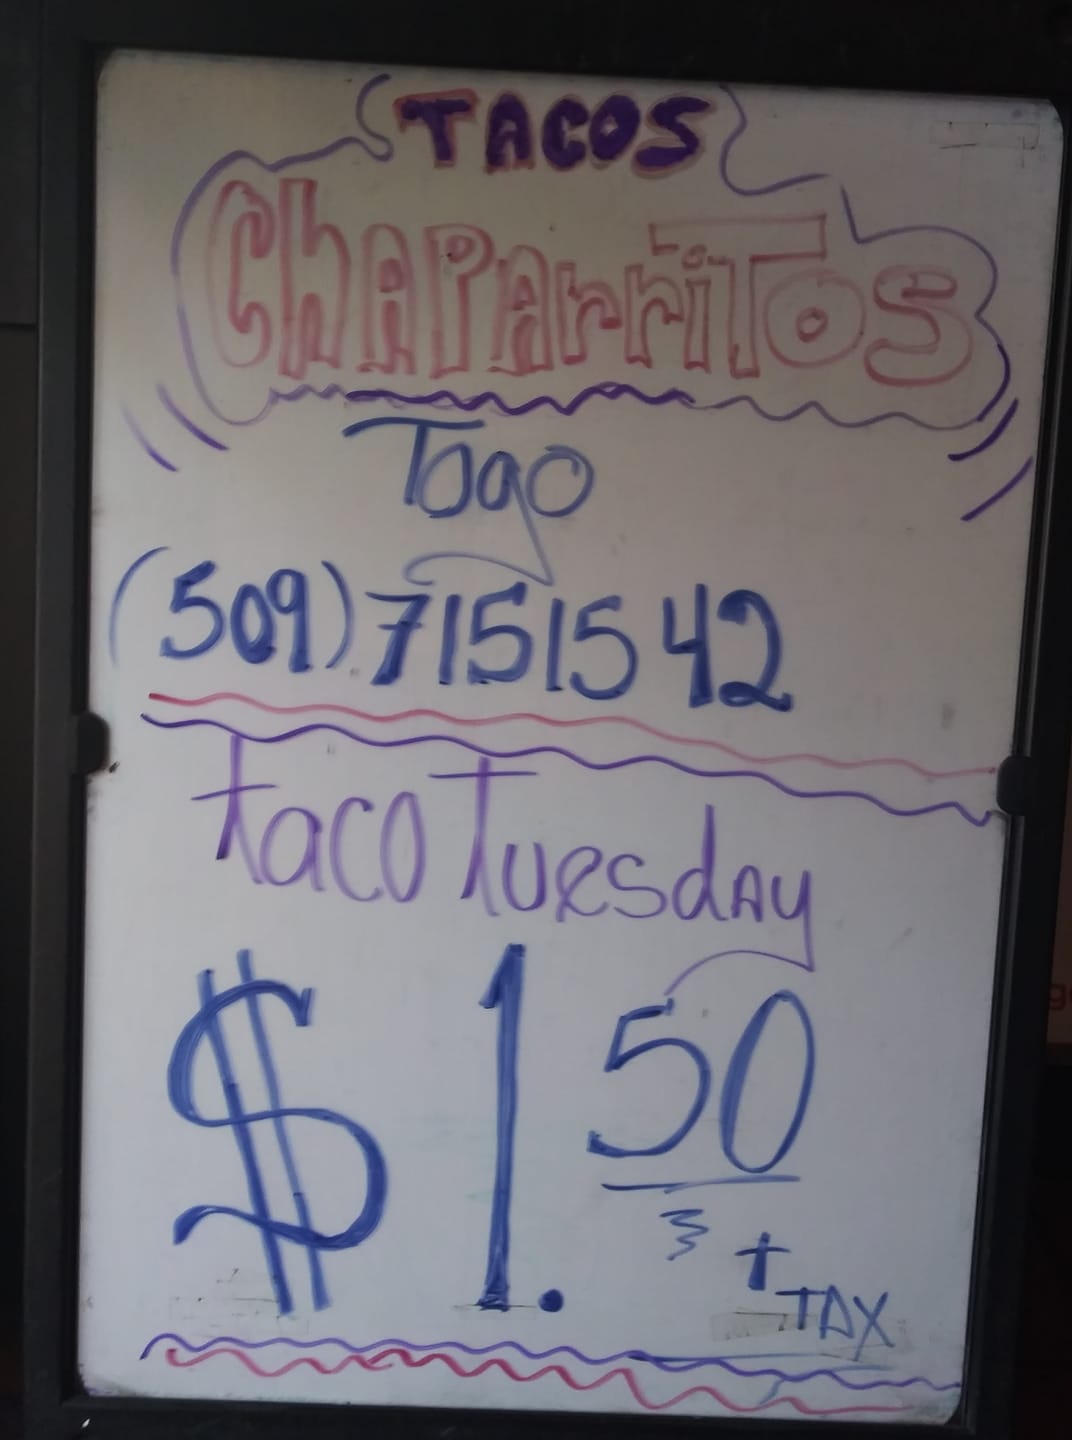 TACOS
ChAPArriTos
Togo
(509) 7151542
taco Tuesday
$1.50
+ TAX